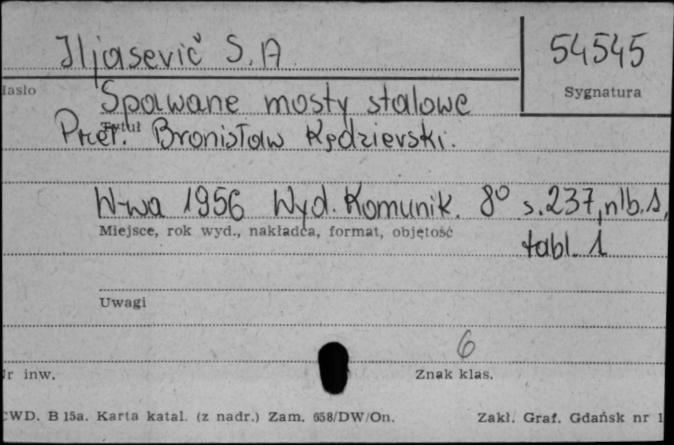 Iljasevič S. A 54545
Hasło Sygnatura
Spawane mosty stalowe
Tytuł
Przeł. Bronisław Kędzierski.
W-wa 1956 Wyd. Komunik. 8° s. 237, nlb. 1,
Miejsce, rok wyd., nakładca, format, objętość
tabl. 1
Uwagi
6
Nr inw. Znak klas.
CWD. B 15a. Karta katal. (z nadr.) Zam. 658/DW/On. Zakł. Graf. Gdańsk nr 1